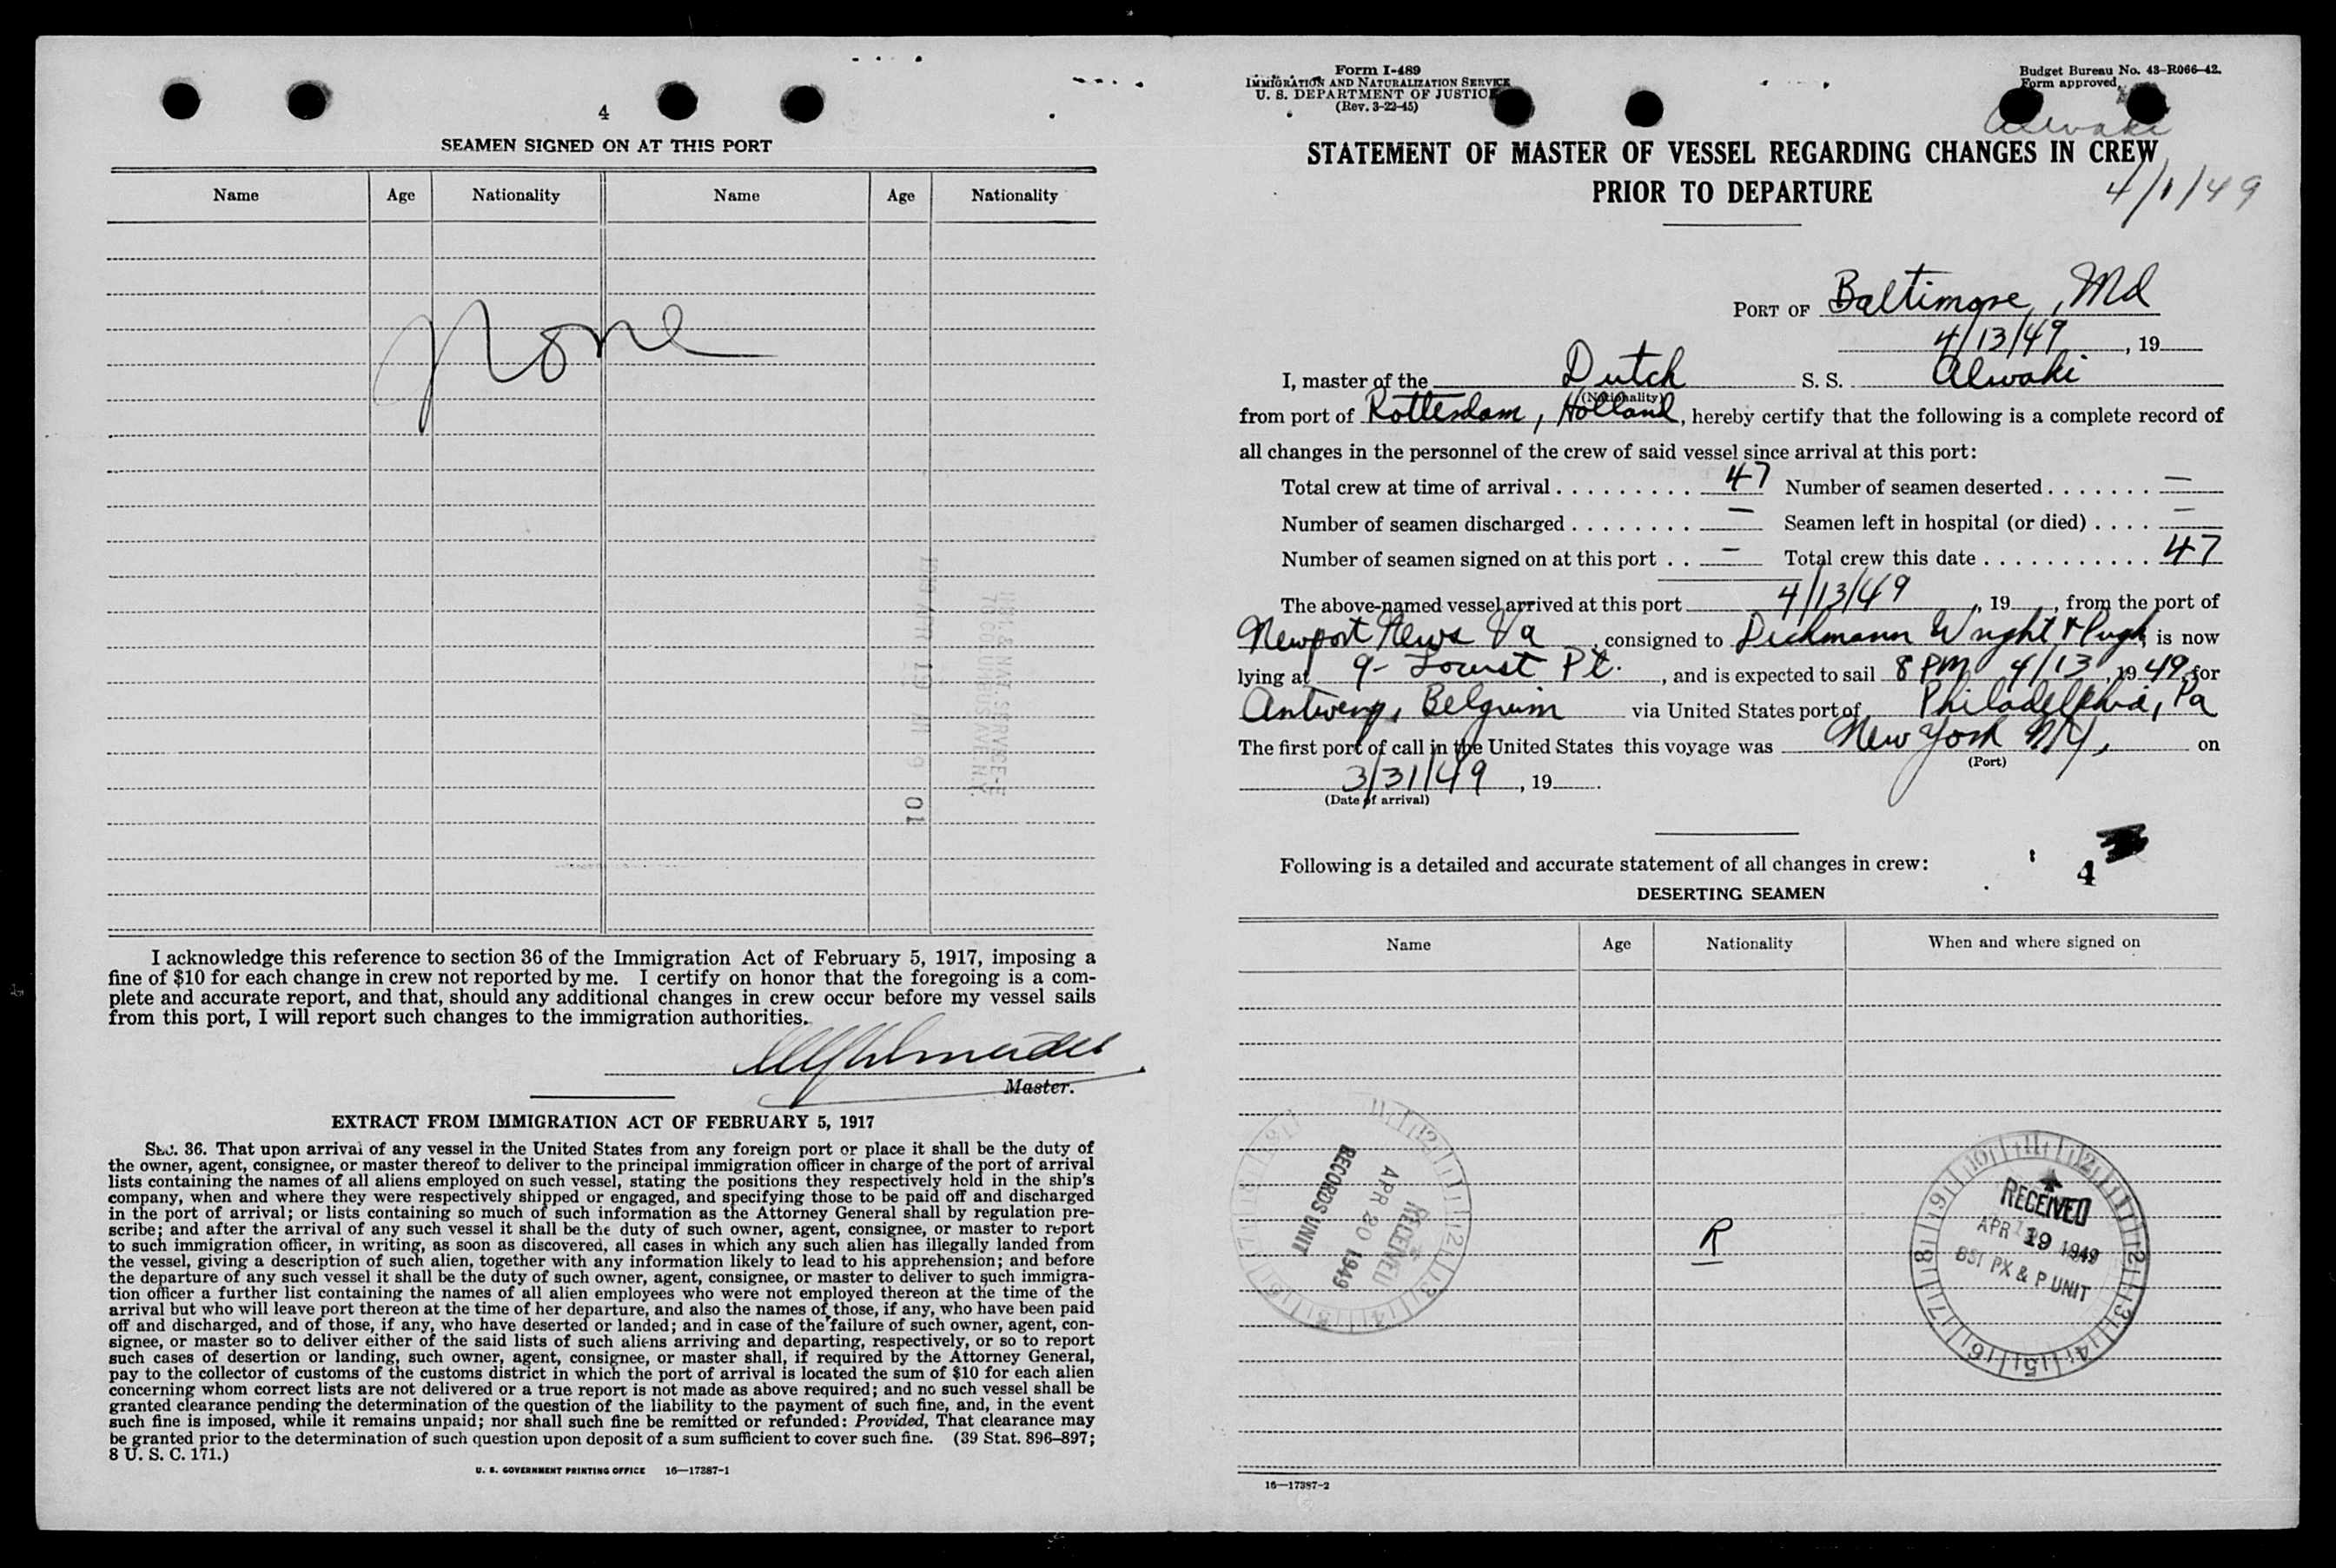 4
SEAMEN SIGNED ON AT THIS PORT
Name Age Nationality Name Age Nationality
None
I acknowledge this reference to section 36 of the Immigration Act of February 5, 1917, imposing a
fine of $10 for each change in crew not reported by me. I certify on honor that the foregoing is a com-
plete and accurate report, and that, should any additional changes in crew occur before my vessel sails
from this port, I will report such changes to the immigration authorities.
Master.
EXTRACT FROM IMMIGRATION ACT OF FEBRUARY 5, 1917
SEC. 36. That upon arrival of any vessel in the United States from any foreign port or place it shall be the duty of
the owner, agent, consignee, or master thereof to deliver to the principal immigration officer in charge of the port of arrival
lists containing the names of all aliens employed on such vessel, stating the positions they respectively hold in the ship's
company, when and where they were respectively shipped or engaged, and specifying those to be paid off and discharged
in the port of arrival; or lists containing so much of such information as the Attorney General shall by regulation pre-
scribe; and after the arrival of any such vessel it shall be the duty of such owner, agent, consignee, or master to report
to such immigration officer, in writing, as soon as discovered, all cases in which any such alien has illegally landed from
the vessel, giving a description of such alien, together with any information likely to lead to his apprehension; and before
the departure of any such vessel it shall be the duty of such owner, agent, consignee, or master to deliver to such immigra-
tion officer a further list containing the names of all alien employees who were not employed thereon at the time of the
arrival but who will leave port thereon at the time of her departure, and also the names of those, if any, who have been paid
off and discharged, and of those, if any, who have deserted or landed; and in case of the failure of such owner, agent, con-
signee, or master so to deliver either of the said lists of such aliens arriving and departing, respectively, or so to report
such cases of desertion or landing, such owner, agent, consignee, or master shall, if required by the Attorney General,
pay to the collector of customs of the customs district in which the port of arrival is located the sum of $10 for each alien
concerning whom correct lists are not delivered or a true report is not made as above required; and no such vessel shall be
granted clearance pending the determination of the question of the liability to the payment of such fine, and, in the event
such fine is imposed, while it remains unpaid; nor shall such fine be remitted or refunded: Provided, That clearance may
be granted prior to the determination of such question upon deposit of a sum sufficient to cover such fine. (39 Stat. 896–897;
8 U. S. C. 171.)
U. S. GOVERNMENT PRINTING OFFICE 16—17387-1
Form I-489
IMMIGRATION AND NATURALIZATION SERVICE
U. S. DEPARTMENT OF JUSTICE
(Rev. 3-22-45)
Budget Bureau No. 43-R066-42.
Form approved.
Alwaki
STATEMENT OF MASTER OF VESSEL REGARDING CHANGES IN CREW
PRIOR TO DEPARTURE
4/1/49
PORT OF Baltimore, Md
4/13/49, 19
I, master of the Dutch S. S. Alwaki
(Nationality)
from port of Rotterdam, Holland, hereby certify that the following is a complete record of
all changes in the personnel of the crew of said vessel since arrival at this port:
Total crew at time of arrival 47 Number of seamen deserted —
Number of seamen discharged — Seamen left in hospital (or died) —
Number of seamen signed on at this port — Total crew this date 47
The above-named vessel arrived at this port 4/13/49, 19 , from the port of
Newport News Va, consigned to Dichmann Wright & Pugh, is now
lying at 9- Locust Pt., and is expected to sail 8 PM 4/13, 1949, for
Antwerp, Belgium via United States port of Philadelphia, Pa
The first port of call in the United States this voyage was New York NY, on
(Port)
3/31/49, 19 .
(Date of arrival)
Following is a detailed and accurate statement of all changes in crew:
4
DESERTING SEAMEN
Name Age Nationality When and where signed on
RECEIVED
APR 20 1949
RECORDS UNIT
R
RECEIVED
APR 19 1949
BSI PX & P UNIT
16—17387-2